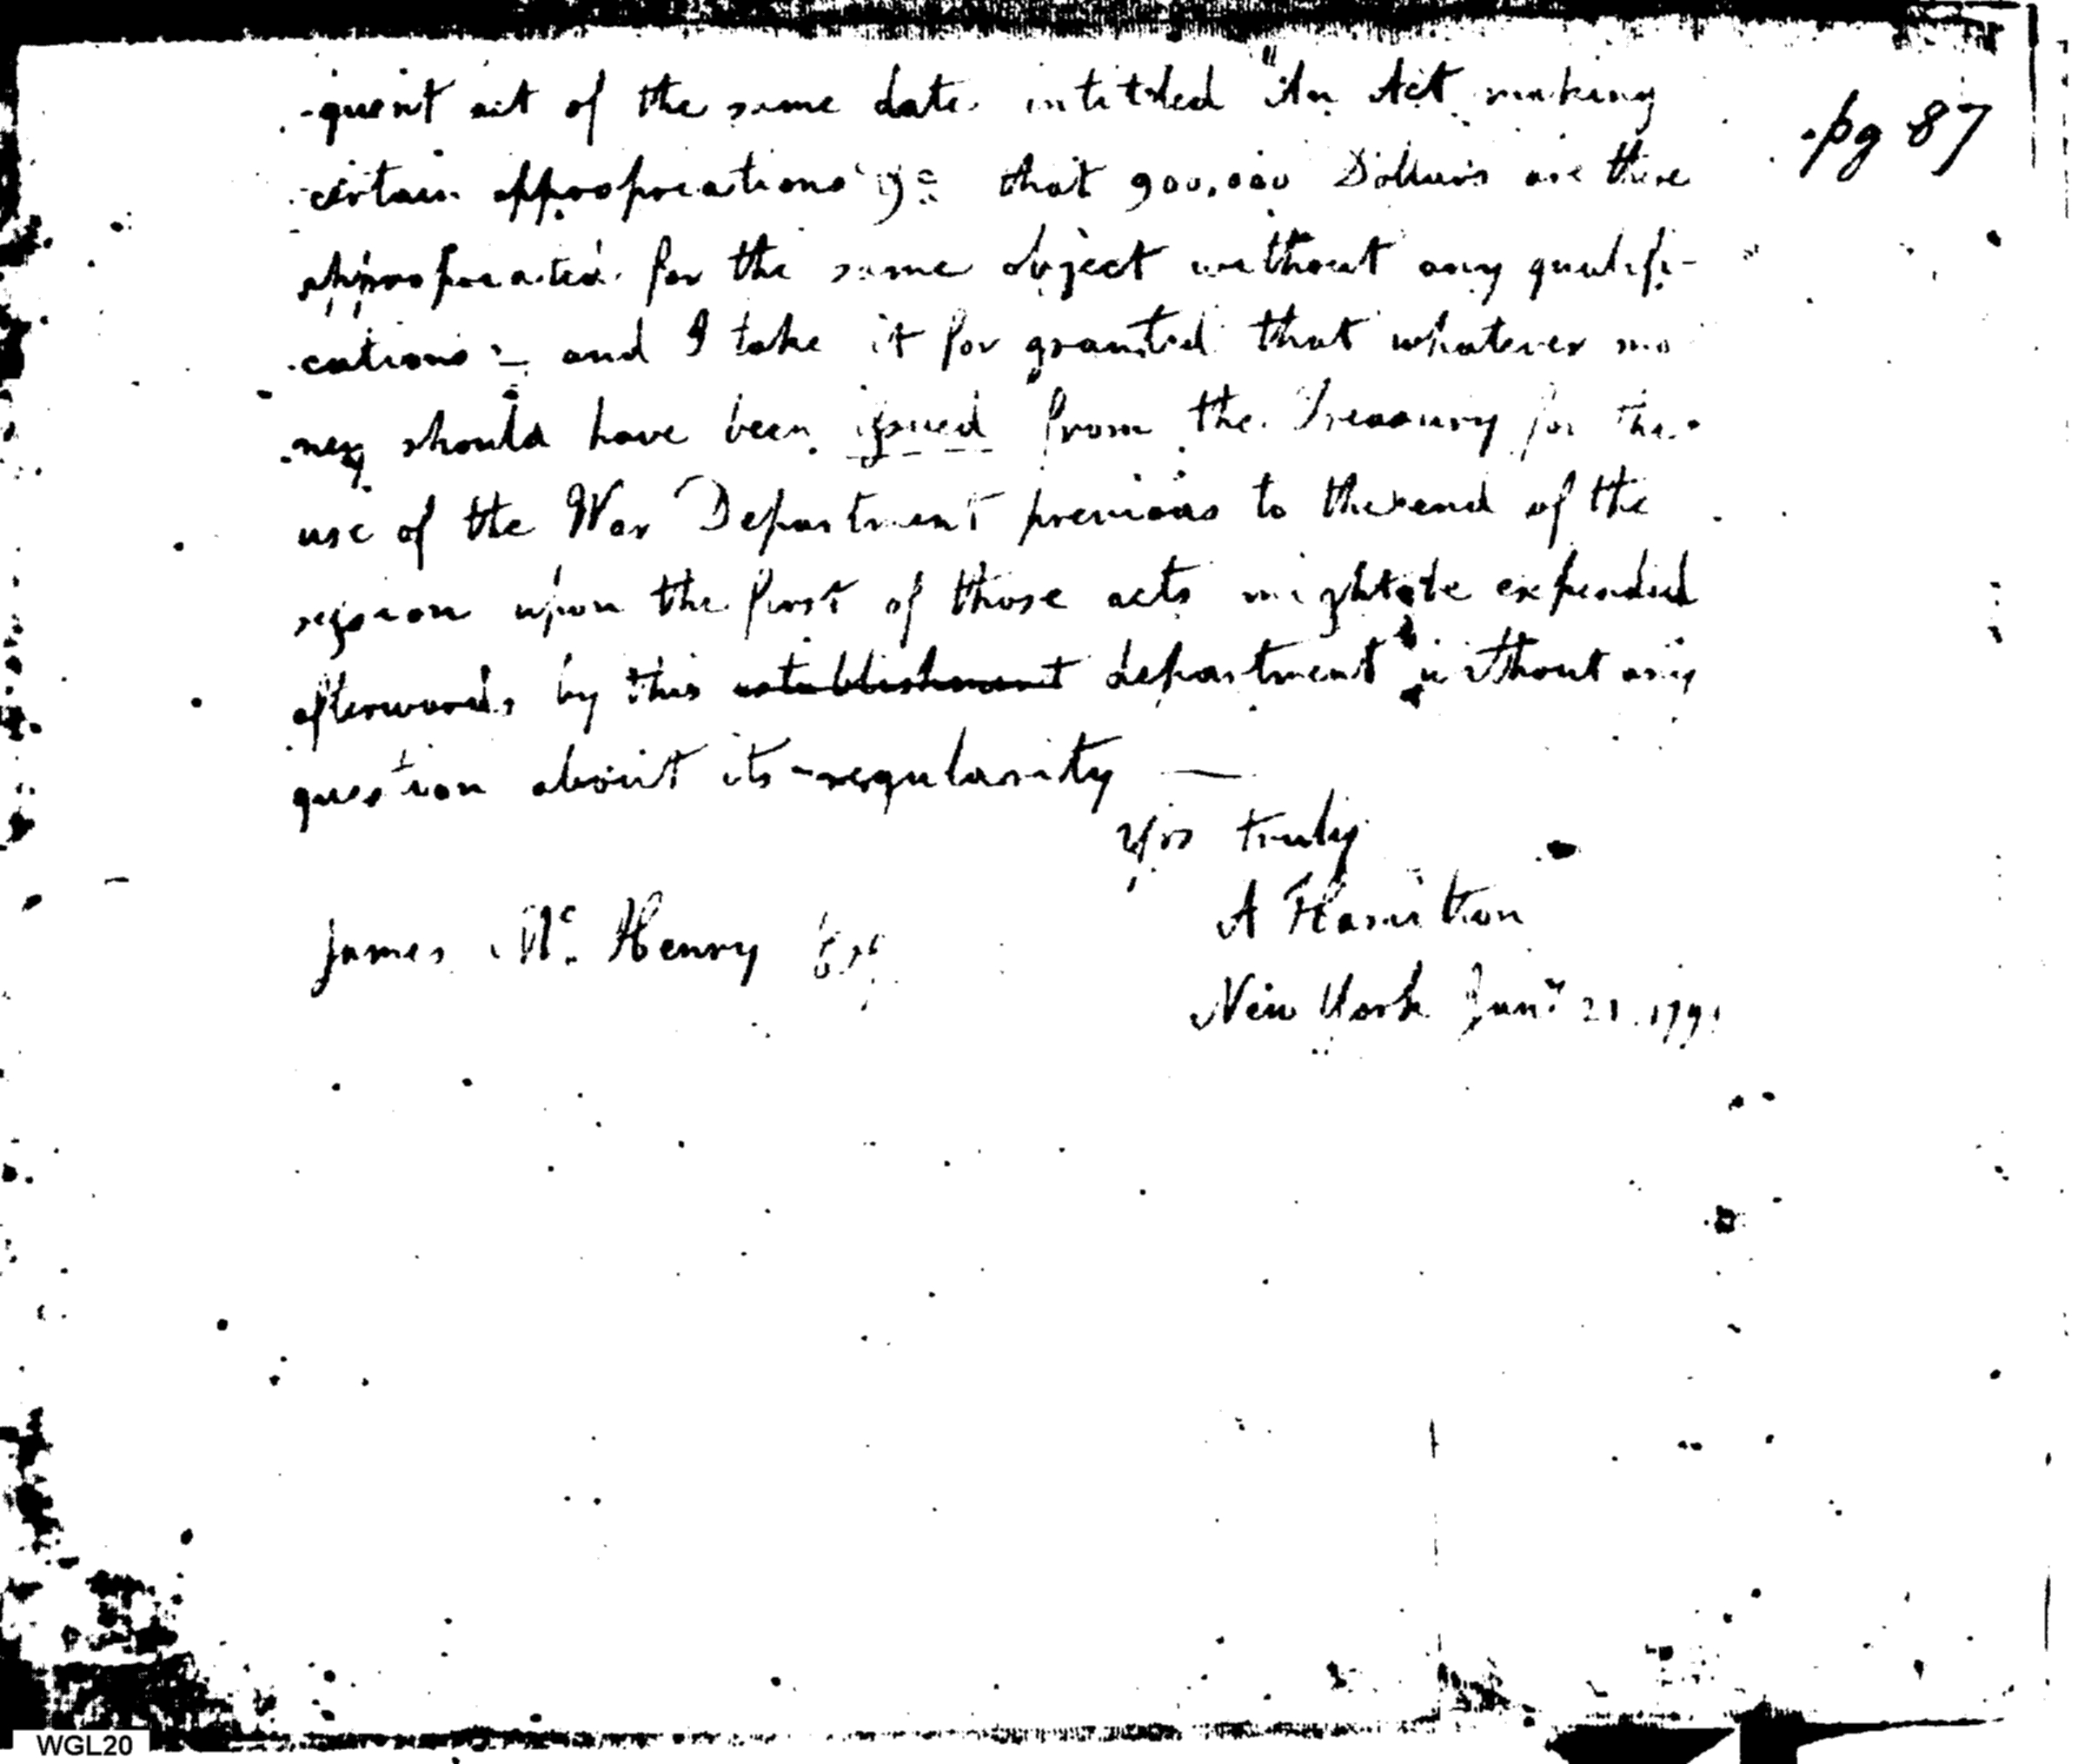 -quent act of the same date intitled "An Act making
pg 87
certain appropriations &c that 900,000 Dollars are there
appropriated for the same object without any qualifi-
cations — and I take it for granted that whatever mo
ney should have been issued from the Treasury for the
use of the War Department previous to the end of the
session upon the first of those acts might be expended
afterwards by this establishment department without any
question about its regularity —
Yrs truly
A Hamilton
James Mc. Henry Esq
New York Jany 21. 179
WGL20